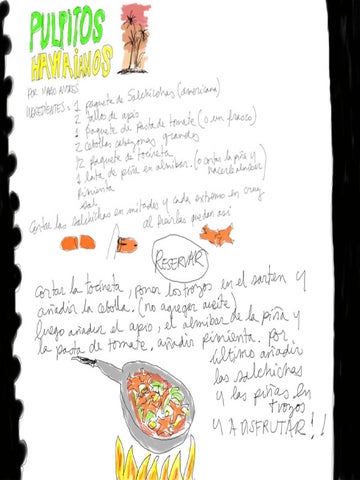 PULPITOS
HAWAIANOS
POR MAGO AMRES
INGREDIENTES = 1 paquete de salchichas (americana)
2 tallos de apio
1 paquete de Pasta de tomate (o un frasco)
2 cebollas cabezonas grandes
1/2 paquete de tocineta
1 lata de piña en almibar. (o cortar la piña y hacerle almibar)
pimienta
sal
Cortar las salchichas en mitades y cada extremo en cruz
al freirlas quedan asi
RESERVAR
Cortar la tocineta, poner los trozos en el sarten y
añadir la cebolla. (no agregar aceite)
luego añadir el apio, el almibar de la piña y
la pasta de tomate. añadir pimienta. por
último añadir
las salchichas
y las piñas en
trozos
Y A DISFRUTAR!!